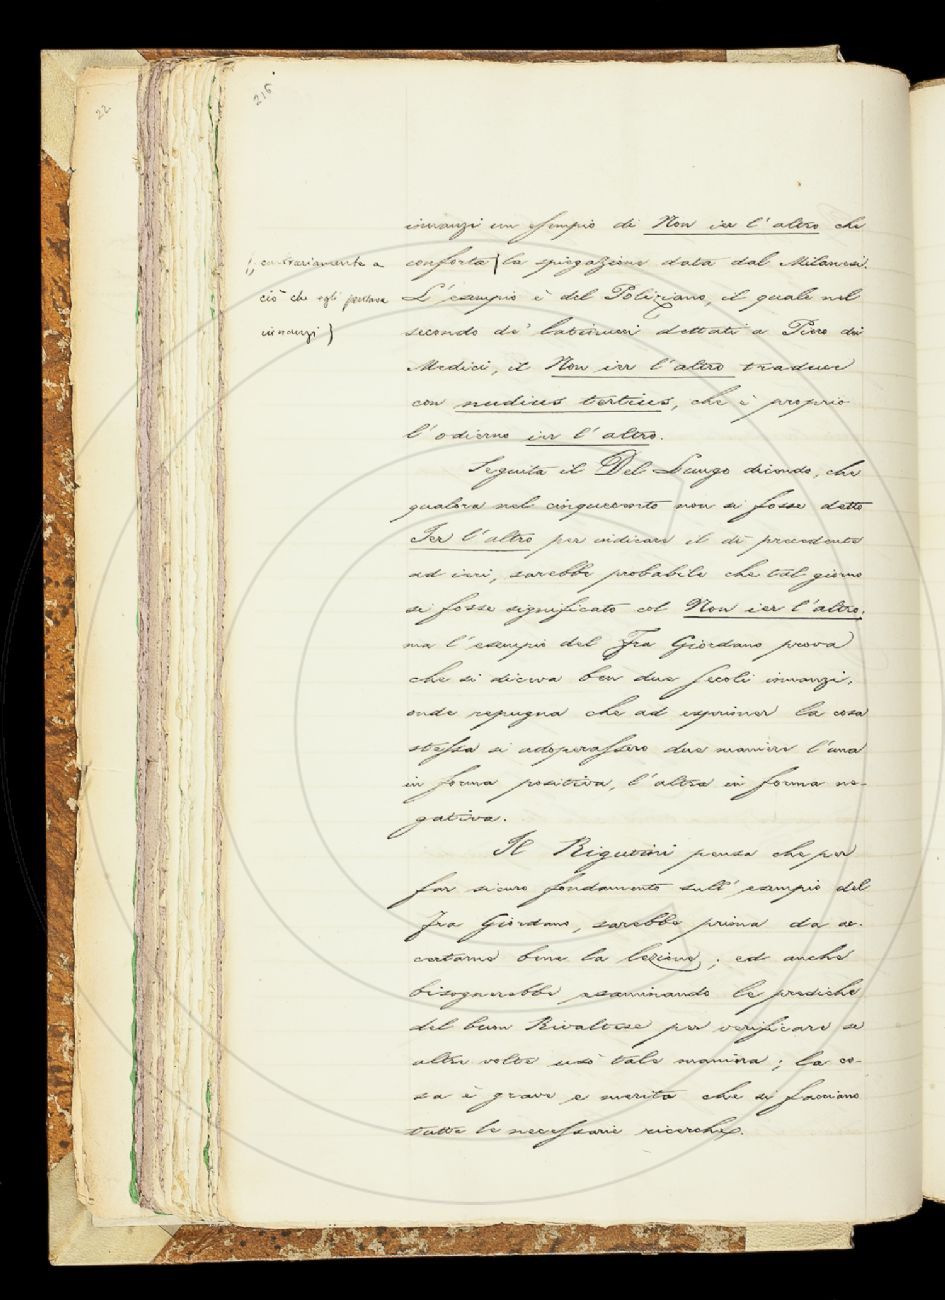 22
216
innanzi un esempio di Non ier l'altro che
conforta la spiegazione data dal Milanesi.
(contrariamente a
ciò che egli pensava
innanzi)
L'esempio è del Poliziano, il quale nel
secondo de' latinucci dettati a Piero dei
Medici, il Non ier l'altro traduce
con nudius tertius, che è proprio
l'odierno ier l'altro.
Seguita il Del Lungo dicendo, che
qualora nel cinquecento non si fosse detto
Ier l'altro per indicare il dì precedente
ad ieri, sarebbe probabile che tal giorno
si fosse significato col Non ier l'altro;
ma l'esempio del Fra Giordano prova
che si diceva ben due secoli innanzi;
onde repugna che ad esprimer la cosa
stessa si adoperassero due maniere l'una
in forma positiva, l'altra in forma ne-
gativa.
Il Rigutini pensa che per
far sicuro fondamento sull'esempio del
Fra Giordano, sarebbe prima da ac-
certarne bene la lezione; ed anche
bisognerebbe esaminando le prediche
del buon Rivaltese per verificare se
altre volte usò tale maniera; la co-
sa è grave e merita che si facciano
tutte le necessarie ricerche.